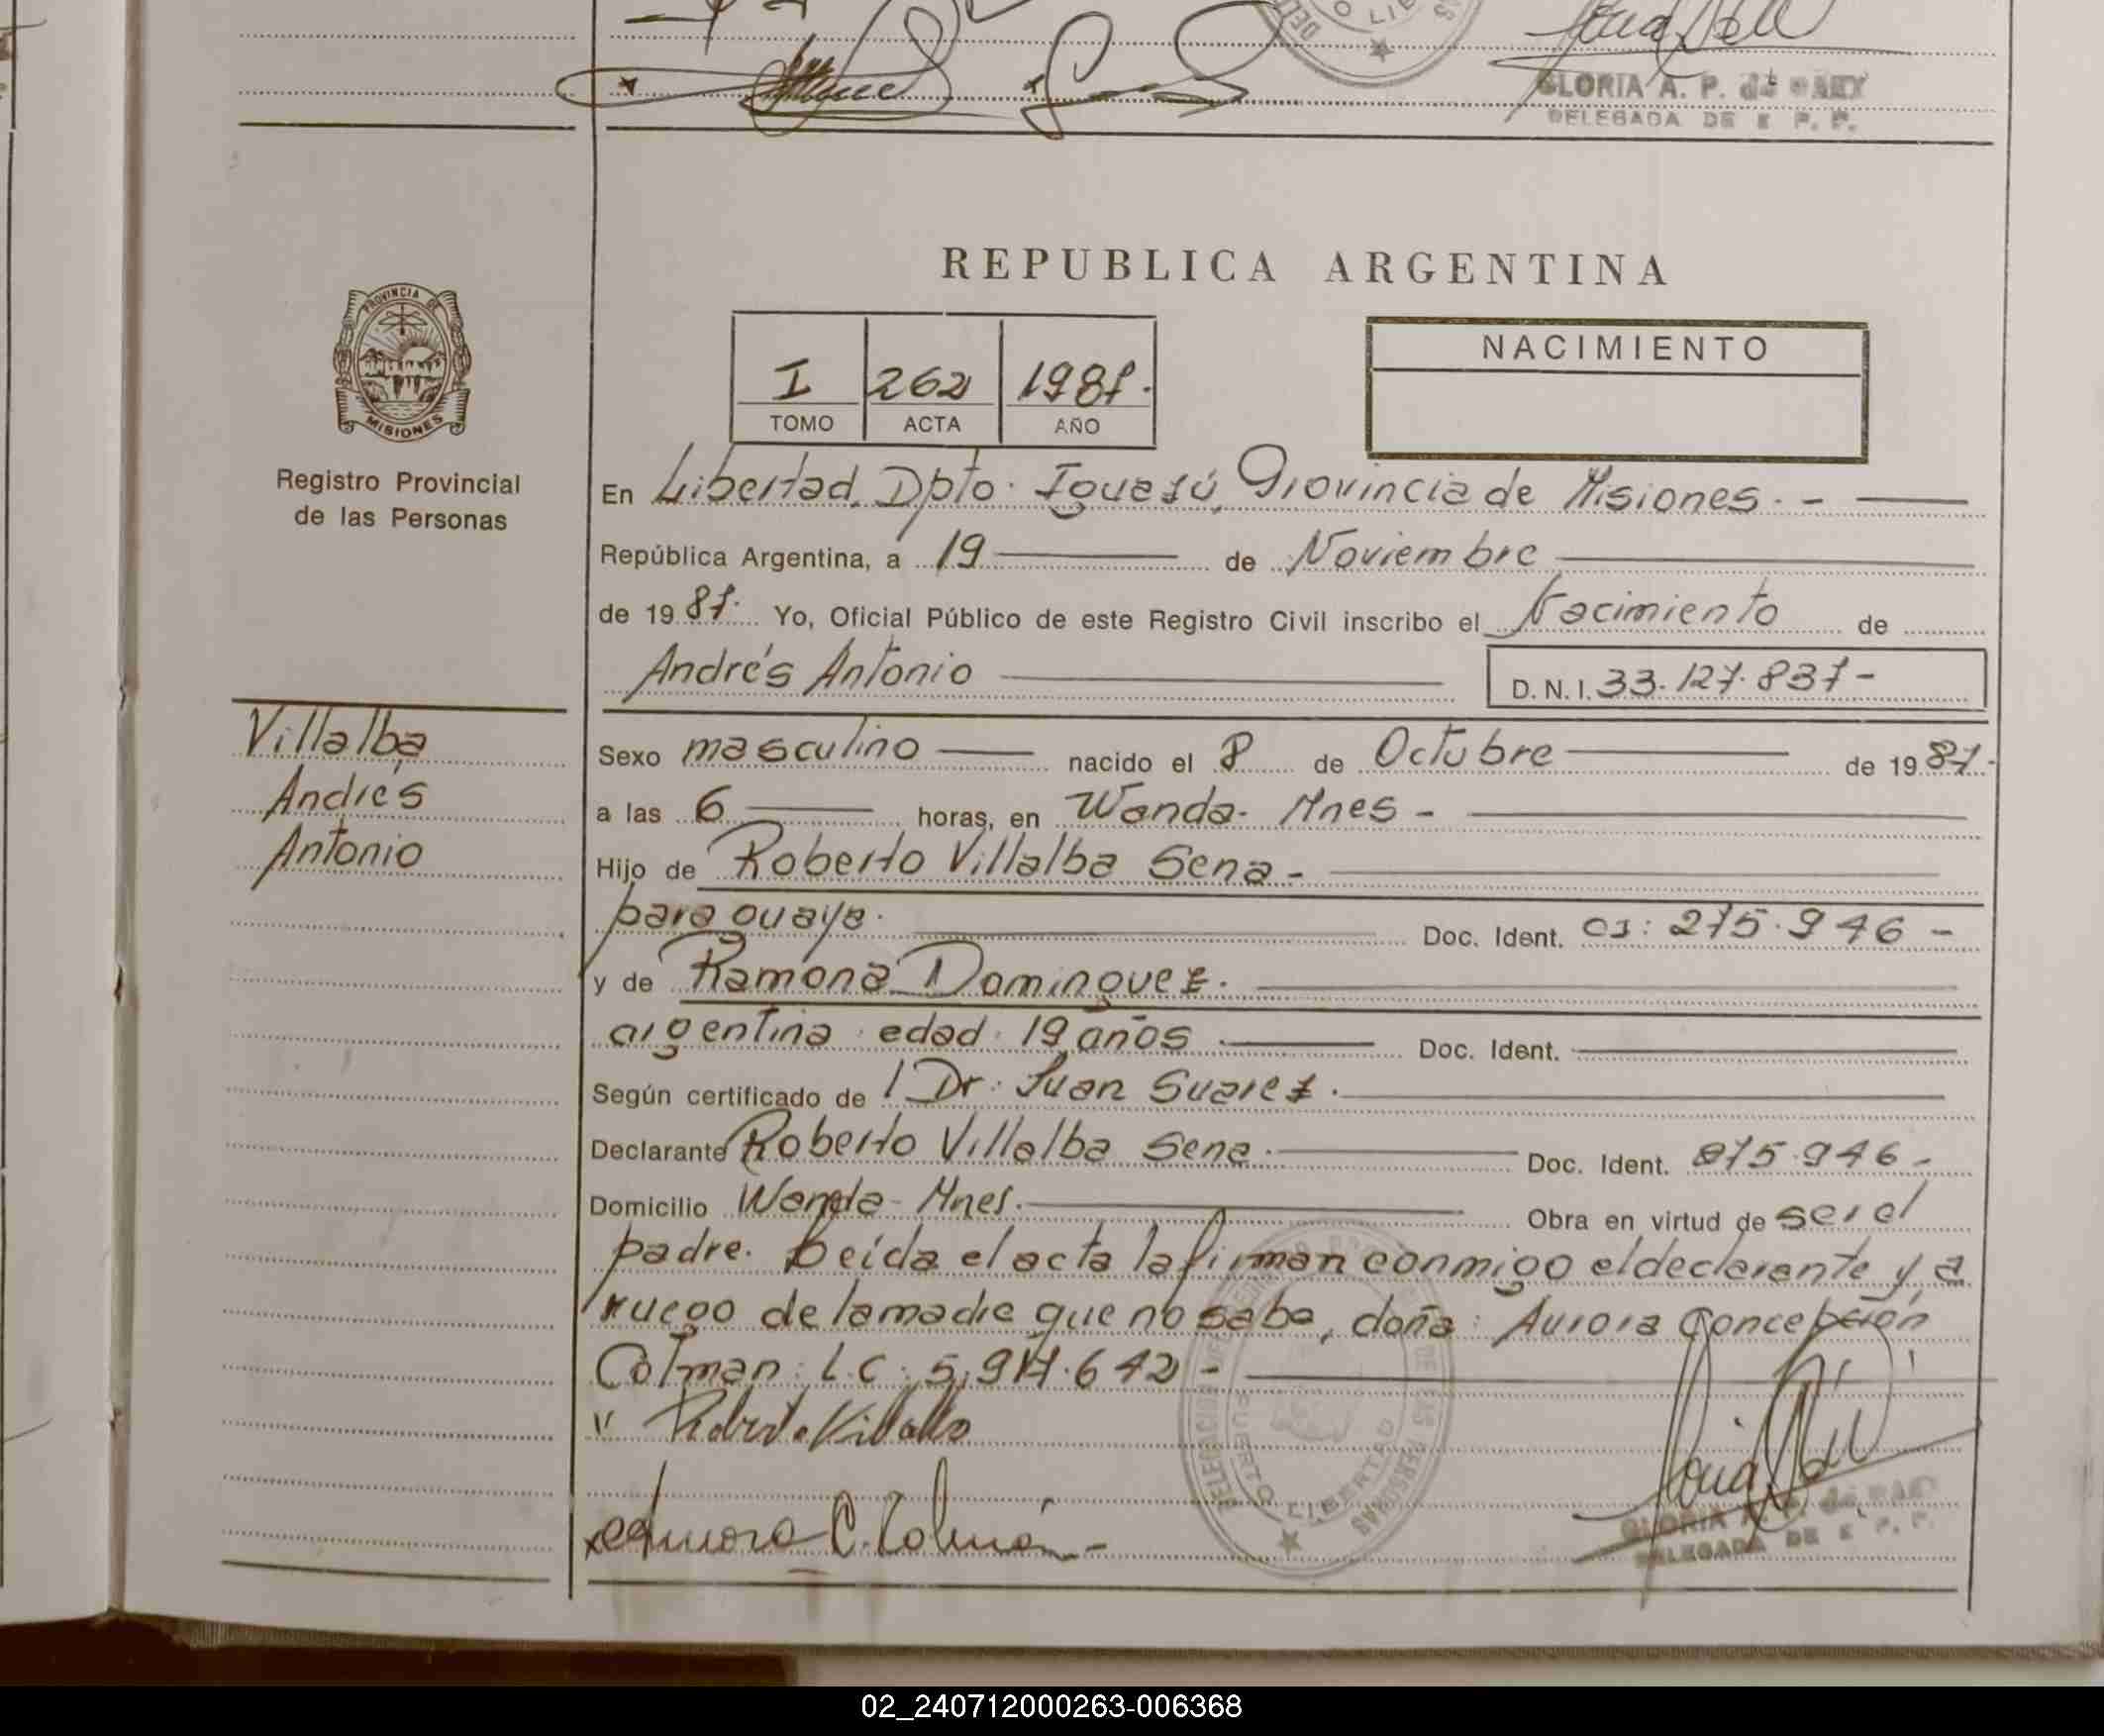 GLORIA A. P. de
DELEGADA DE R. P. P.
REPUBLICA ARGENTINA
PROVINCIA DE
MISIONES
Registro Provincial
de las Personas
I 262 1987.
TOMO ACTA AÑO
NACIMIENTO
En Libertad, Dpto. Iguazú, Provincia de Misiones. -
República Argentina, a 19 de Noviembre
de 1987. Yo, Oficial Público de este Registro Civil inscribo el Nacimiento de
Andrés Antonio D.N.I. 33.127.837-
Villalba
Andrés
Antonio
Sexo masculino nacido el 8 de Octubre de 1987.
a las 6 horas, en Wanda- Mnes -
Hijo de Roberto Villalba Sena -
paraguaya. Doc. Ident. 946 -
y de Ramona Dominguez.
argentina edad 19 años Doc. Ident.
Según certificado de Dr. Juan Suarez.
Declarante Roberto Villalba Sena. Doc. Ident. 946-
Domicilio Wanda- Mnes. Obra en virtud de ser el
padre. Leída el acta la firman conmigo el declarante y a
ruego de la madre que no sabe, doña: Aurora Concepción
Colman: L.C: 642 -
Roberto Villalba
Aurora C. Colmán -
PUERTO LIBERTAD
GLORIA A. P. de
DELEGADA DE R. P. P.
02_240712000263-006368